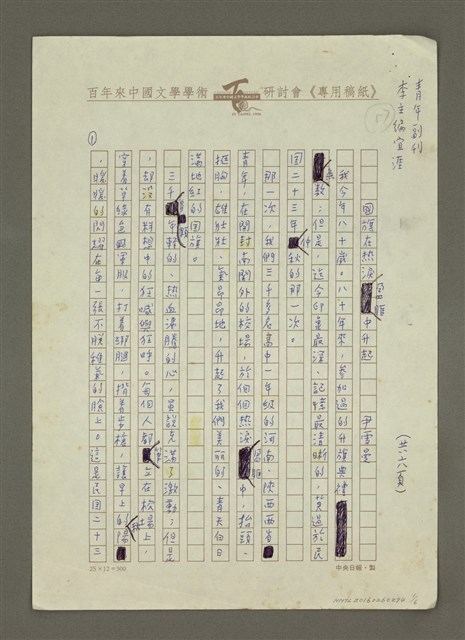 百年來中國文學學術研討會《專用稿紙》
青年副刊
李主編宜涯
(共六頁)
國旗在熱淚盈眶中升起 尹雪曼
我今年八十歲。八十年來,參加過的升旗典禮
無數;但是,迄今印象最深、記憶最清晰的,莫過於民
國二十三年仲秋的那一次。
那一次,我們三千多名高中一年級的河南、陝西兩省
青年,在開封南關外的校場,於個個熱淚盈眶中,抬頭、
挺胸,雄壯壯、氣昂昂地,升起了我們美麗的、青天白日
滿地紅的國旗。
三千顆年輕的、熱血沸騰的心,虽說充滿了激動;但是
,却沒有料想中的狂喊與狂呼。每個人都站立在校場上,
穿着草綠色國軍服,打着綁腿,揹着步槍,讓早上的陽
,暖暖的閃耀在每一張不脫稚氣的臉上。這是民國二十三
①
25×12=300
中央日報・製